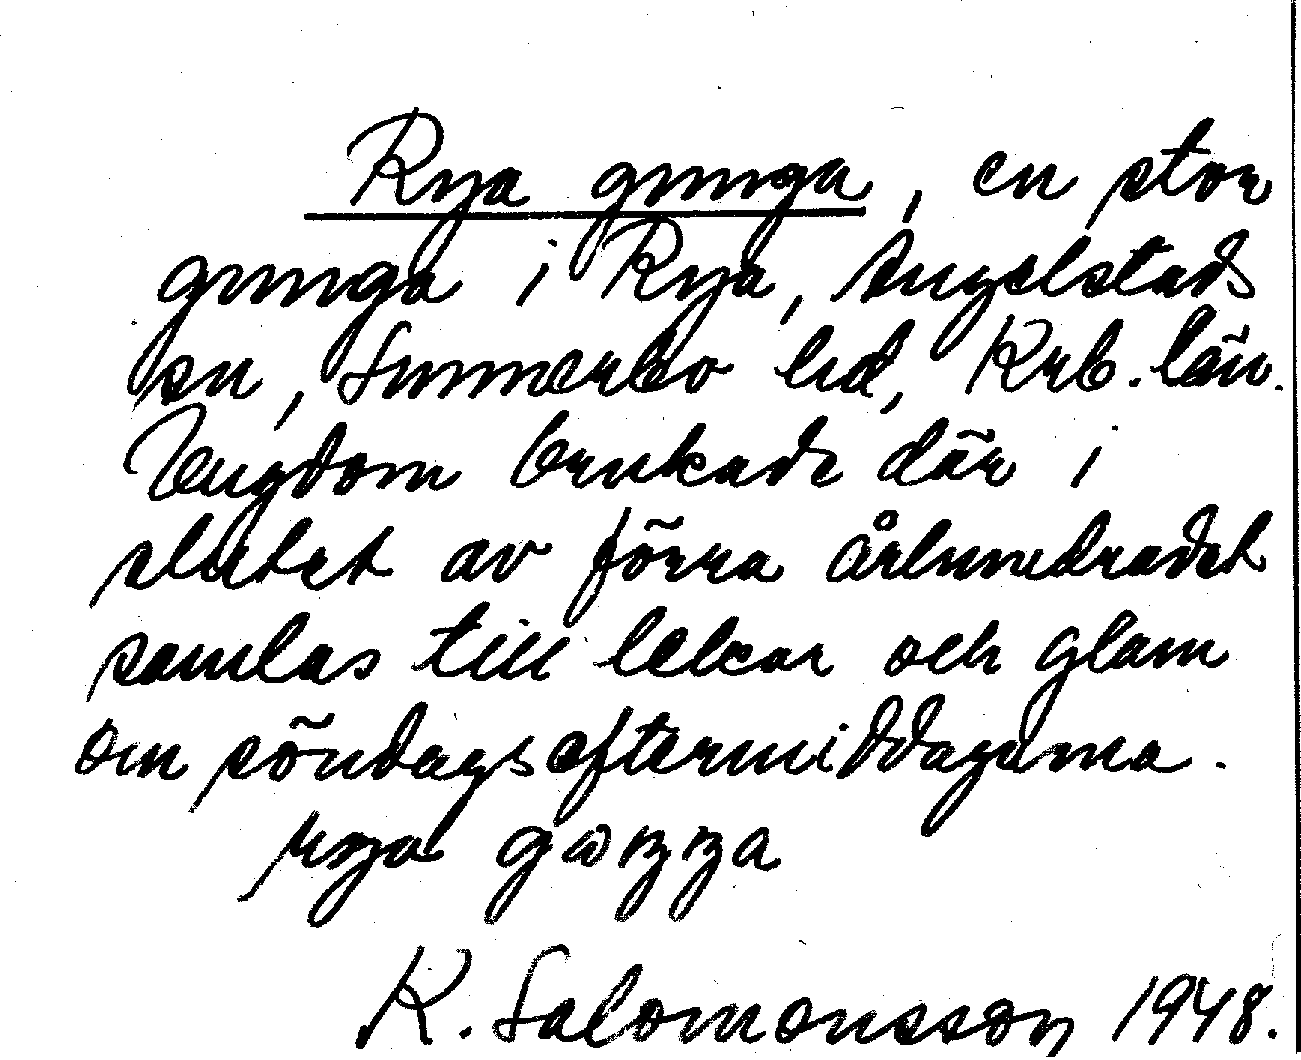 Rya gunga, en stor
gunga i Rya, Angelstads
sn, Sunnerbo hd, Krb. län.
Ungdom brukade där i
slutet av förra århundradet
samlas till lekar och glam
om söndagseftermiddagarna.
rya gɷŋŋa
K. Salomonsson 1948.